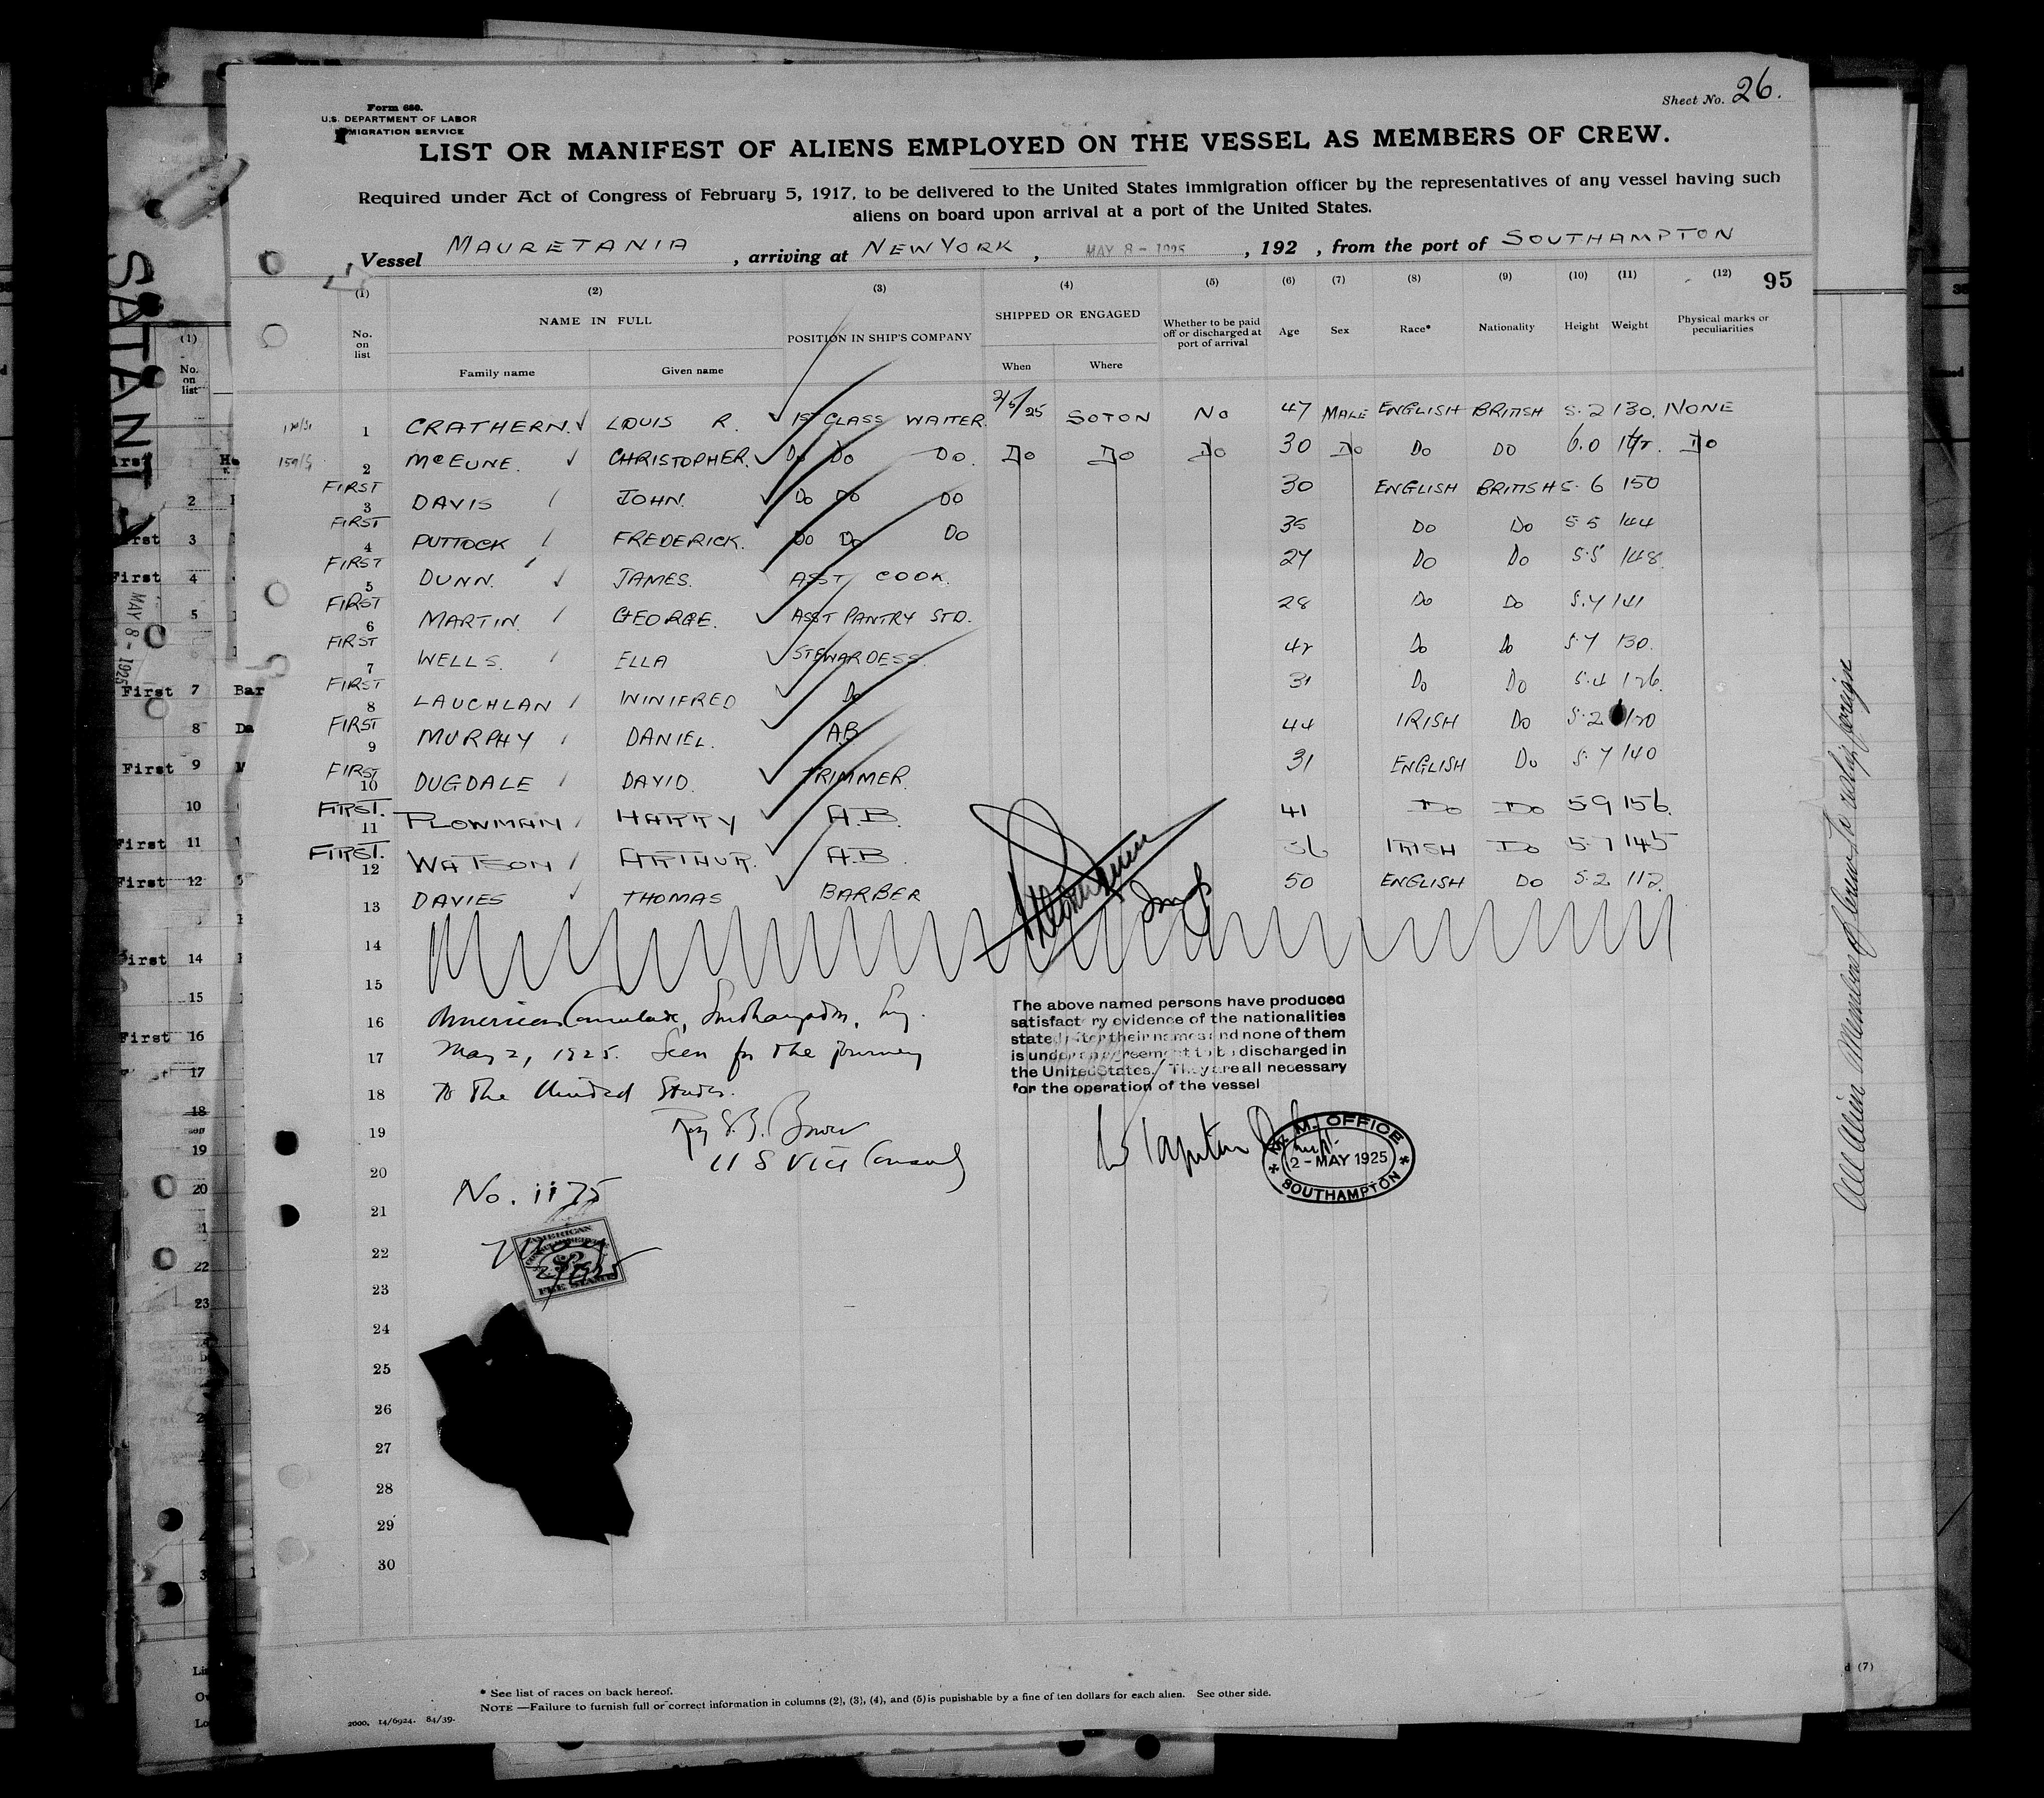 Sheet No. 26.
Form 680.
U.S. DEPARTMENT OF LABOR
IMMIGRATION SERVICE
LIST OR MANIFEST OF ALIENS EMPLOYED ON THE VESSEL AS MEMBERS OF CREW.
Required under Act of Congress of February 5, 1917, to be delivered to the United States immigration officer by the representatives of any vessel having such
aliens on board upon arrival at a port of the United States.
Vessel MAURETANIA, arriving at NEW YORK, MAY 8 - 1925, 192 , from the port of SOUTHAMPTON
95
(1) (2) (3) (4) (5) (6) (7) (8) (9) (10) (11) (12)
No. on list NAME IN FULL POSITION IN SHIP'S COMPANY SHIPPED OR ENGAGED Whether to be paid off or discharged at port of arrival Age Sex Race* Nationality Height Weight Physical marks or peculiarities
Family name Given name When Where
1 CRATHERN. LOUIS R. 1ST CLASS WAITER. 2/5/25 SOTON No 47 MALE ENGLISH BRITISH 5.2 130. NONE
2 McEUNE. CHRISTOPHER. Do Do Do. Do Do Do 30 Do Do Do 6.0 Do
FIRST 3 DAVIS JOHN. Do Do Do 30 ENGLISH BRITISH 5.6 150
FIRST 4 PUTTOCK FREDERICK. Do Do Do 35 Do Do 5.5 144
FIRST 5 DUNN. JAMES. ASST COOK. 27 Do Do 5.5 148.
FIRST 6 MARTIN. GEORGE. ASST PANTRY STD. 28 Do Do 5.7 141
FIRST 7 WELLS. ELLA STEWARDESS. 42 Do Do 5.7 130.
FIRST 8 LAUCHLAN WINIFRED Do 31 Do Do 5.4 126.
FIRST 9 MURPHY DANIEL. A.B 44 IRISH Do 5.2
FIRST 10 DUGDALE DAVID. TRIMMER. 31 ENGLISH Do 5.7 140
FIRST. 11 PLOWMAN HARRY A.B. 41 Do Do 5 9 156.
FIRST. 12 WATSON ARTHUR. A.B. IRISH Do 5.7 145
13 DAVIES THOMAS BARBER 50 ENGLISH Do 5.2 112.
14
15
16 American Consulate, Southampton, Eng.
17 May 2, 1925. Seen for the journey
18 to the United States.
19 Roy
20 U S Vice Consul
21 No. 1175
22
23
24
25
26
27
28
29
30
The above named persons have produced
satisfactory evidence of the nationalities
stated after their names and none of them
is under an agreement to be discharged in
the United States. They are all necessary
for the operation of the vessel
M. M. OFFICE
2 - MAY 1925
SOUTHAMPTON
AMERICAN
$2
FEE STAMP
* See list of races on back hereof.
NOTE —Failure to furnish full or correct information in columns (2), (3), (4), and (5) is punishable by a fine of ten dollars for each alien. See other side.
2000. 14/6924. 84/39.
All Alien Members of Crew
MAY 8 - 1925
(1)
No.
on
list
2
First 3
First 4
5
First 7 Bar
8 Da
First 9
10
First 11
First 12
First 14
15
First 16
17
18
19
20
21
22
23
d (7)